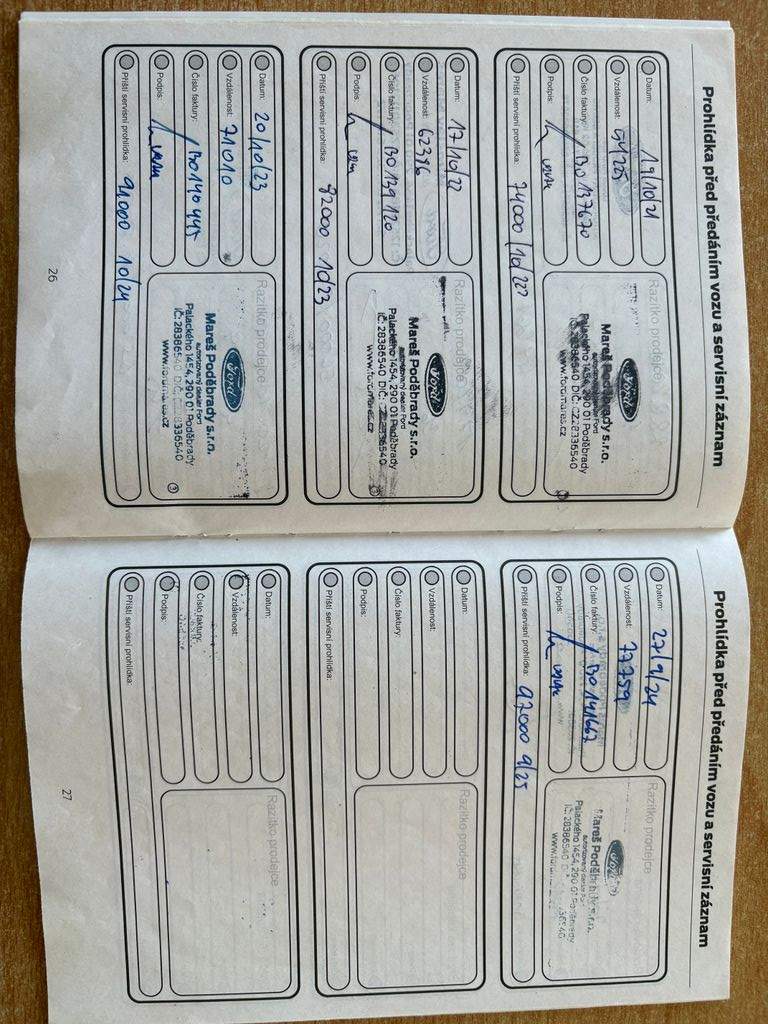 Prohlídka před předáním vozu a servisní záznam
Datum: 19/10/21
Vzdálenost: 54205
Číslo faktury: BO 137670
Podpis:
Příští servisní prohlídka: 74000 /10/22
Razítko prodejce
Ford
Mareš Poděbrady s.r.o.
autorizovaný dealer Ford
Palackého 1454, 290 01 Poděbrady
IČ: 28386540 DIČ: CZ28336540
www.fordmares.cz
Datum: 17/10/22
Vzdálenost: 62396
Číslo faktury: BO 139120
Podpis:
Příští servisní prohlídka: 82000 10/23
Razítko prodejce
Ford
Mareš Poděbrady s.r.o.
autorizovaný dealer Ford
Palackého 1454, 290 01 Poděbrady
IČ: 28386540 DIČ:
www.fordmares.cz
Datum: 20/10/23
Vzdálenost: 71010
Číslo faktury:
Podpis:
Příští servisní prohlídka: 91000 10/24
Razítko prodejce
Ford
Mareš Poděbrady s.r.o.
autorizovaný dealer Ford
Palackého 1454, 290 01 Poděbrady
IČ: 28386540 DIČ:
www.fordmares.cz
26
Prohlídka před předáním vozu a servisní záznam
Datum: 27/9/24
Vzdálenost: 77759
Číslo faktury: BO 141667
Podpis:
Příští servisní prohlídka: 97000 9/25
Razítko prodejce
Ford
Mareš Poděbrady s.r.o.
autorizovaný dealer Ford
Palackého 1454, 290 01 Poděbrady
IČ: 28386540
Datum:
Vzdálenost:
Číslo faktury:
Podpis:
Příští servisní prohlídka:
Razítko prodejce
Datum:
Vzdálenost:
Číslo faktury:
Podpis:
Příští servisní prohlídka:
Razítko prodejce
27